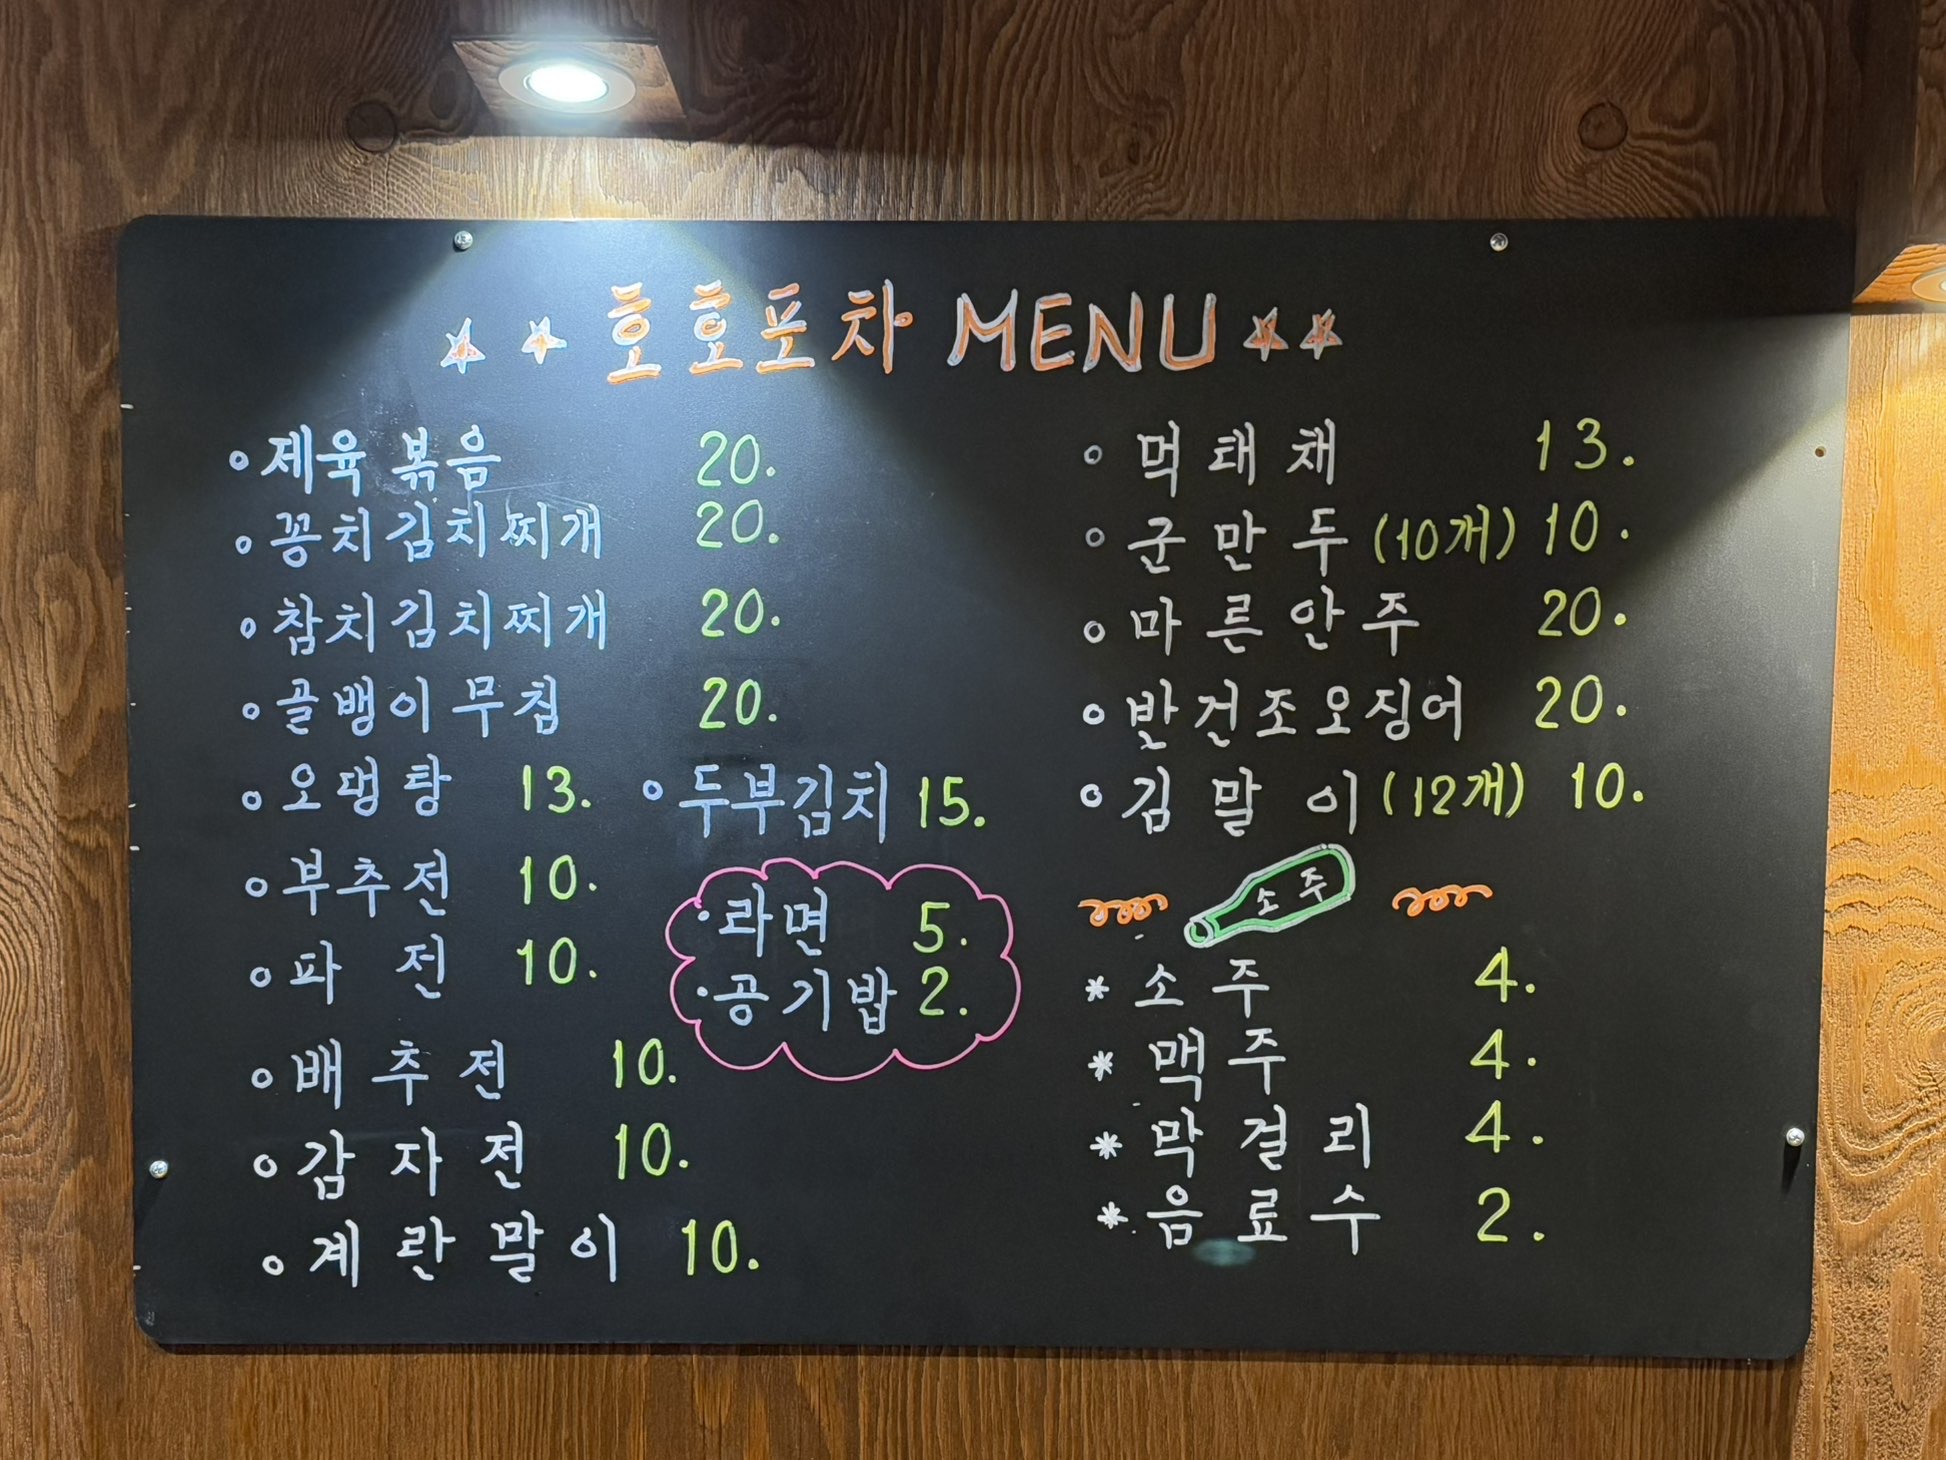 호호포차 MENU
제육볶음 20.
꽁치김치찌개 20.
참치김치찌개 20.
골뱅이무침 20.
오뎅탕 13.
두부김치 15.
부추전 10.
파전 10.
라면 5.
공기밥 2.
배추전 10.
감자전 10.
계란말이 10.
먹태채 13.
군만두 (10개) 10.
마른안주 20.
반건조오징어 20.
김말이 (12개) 10.
소주
* 소주 4.
* 맥주 4.
* 막걸리 4.
* 음료수 2.